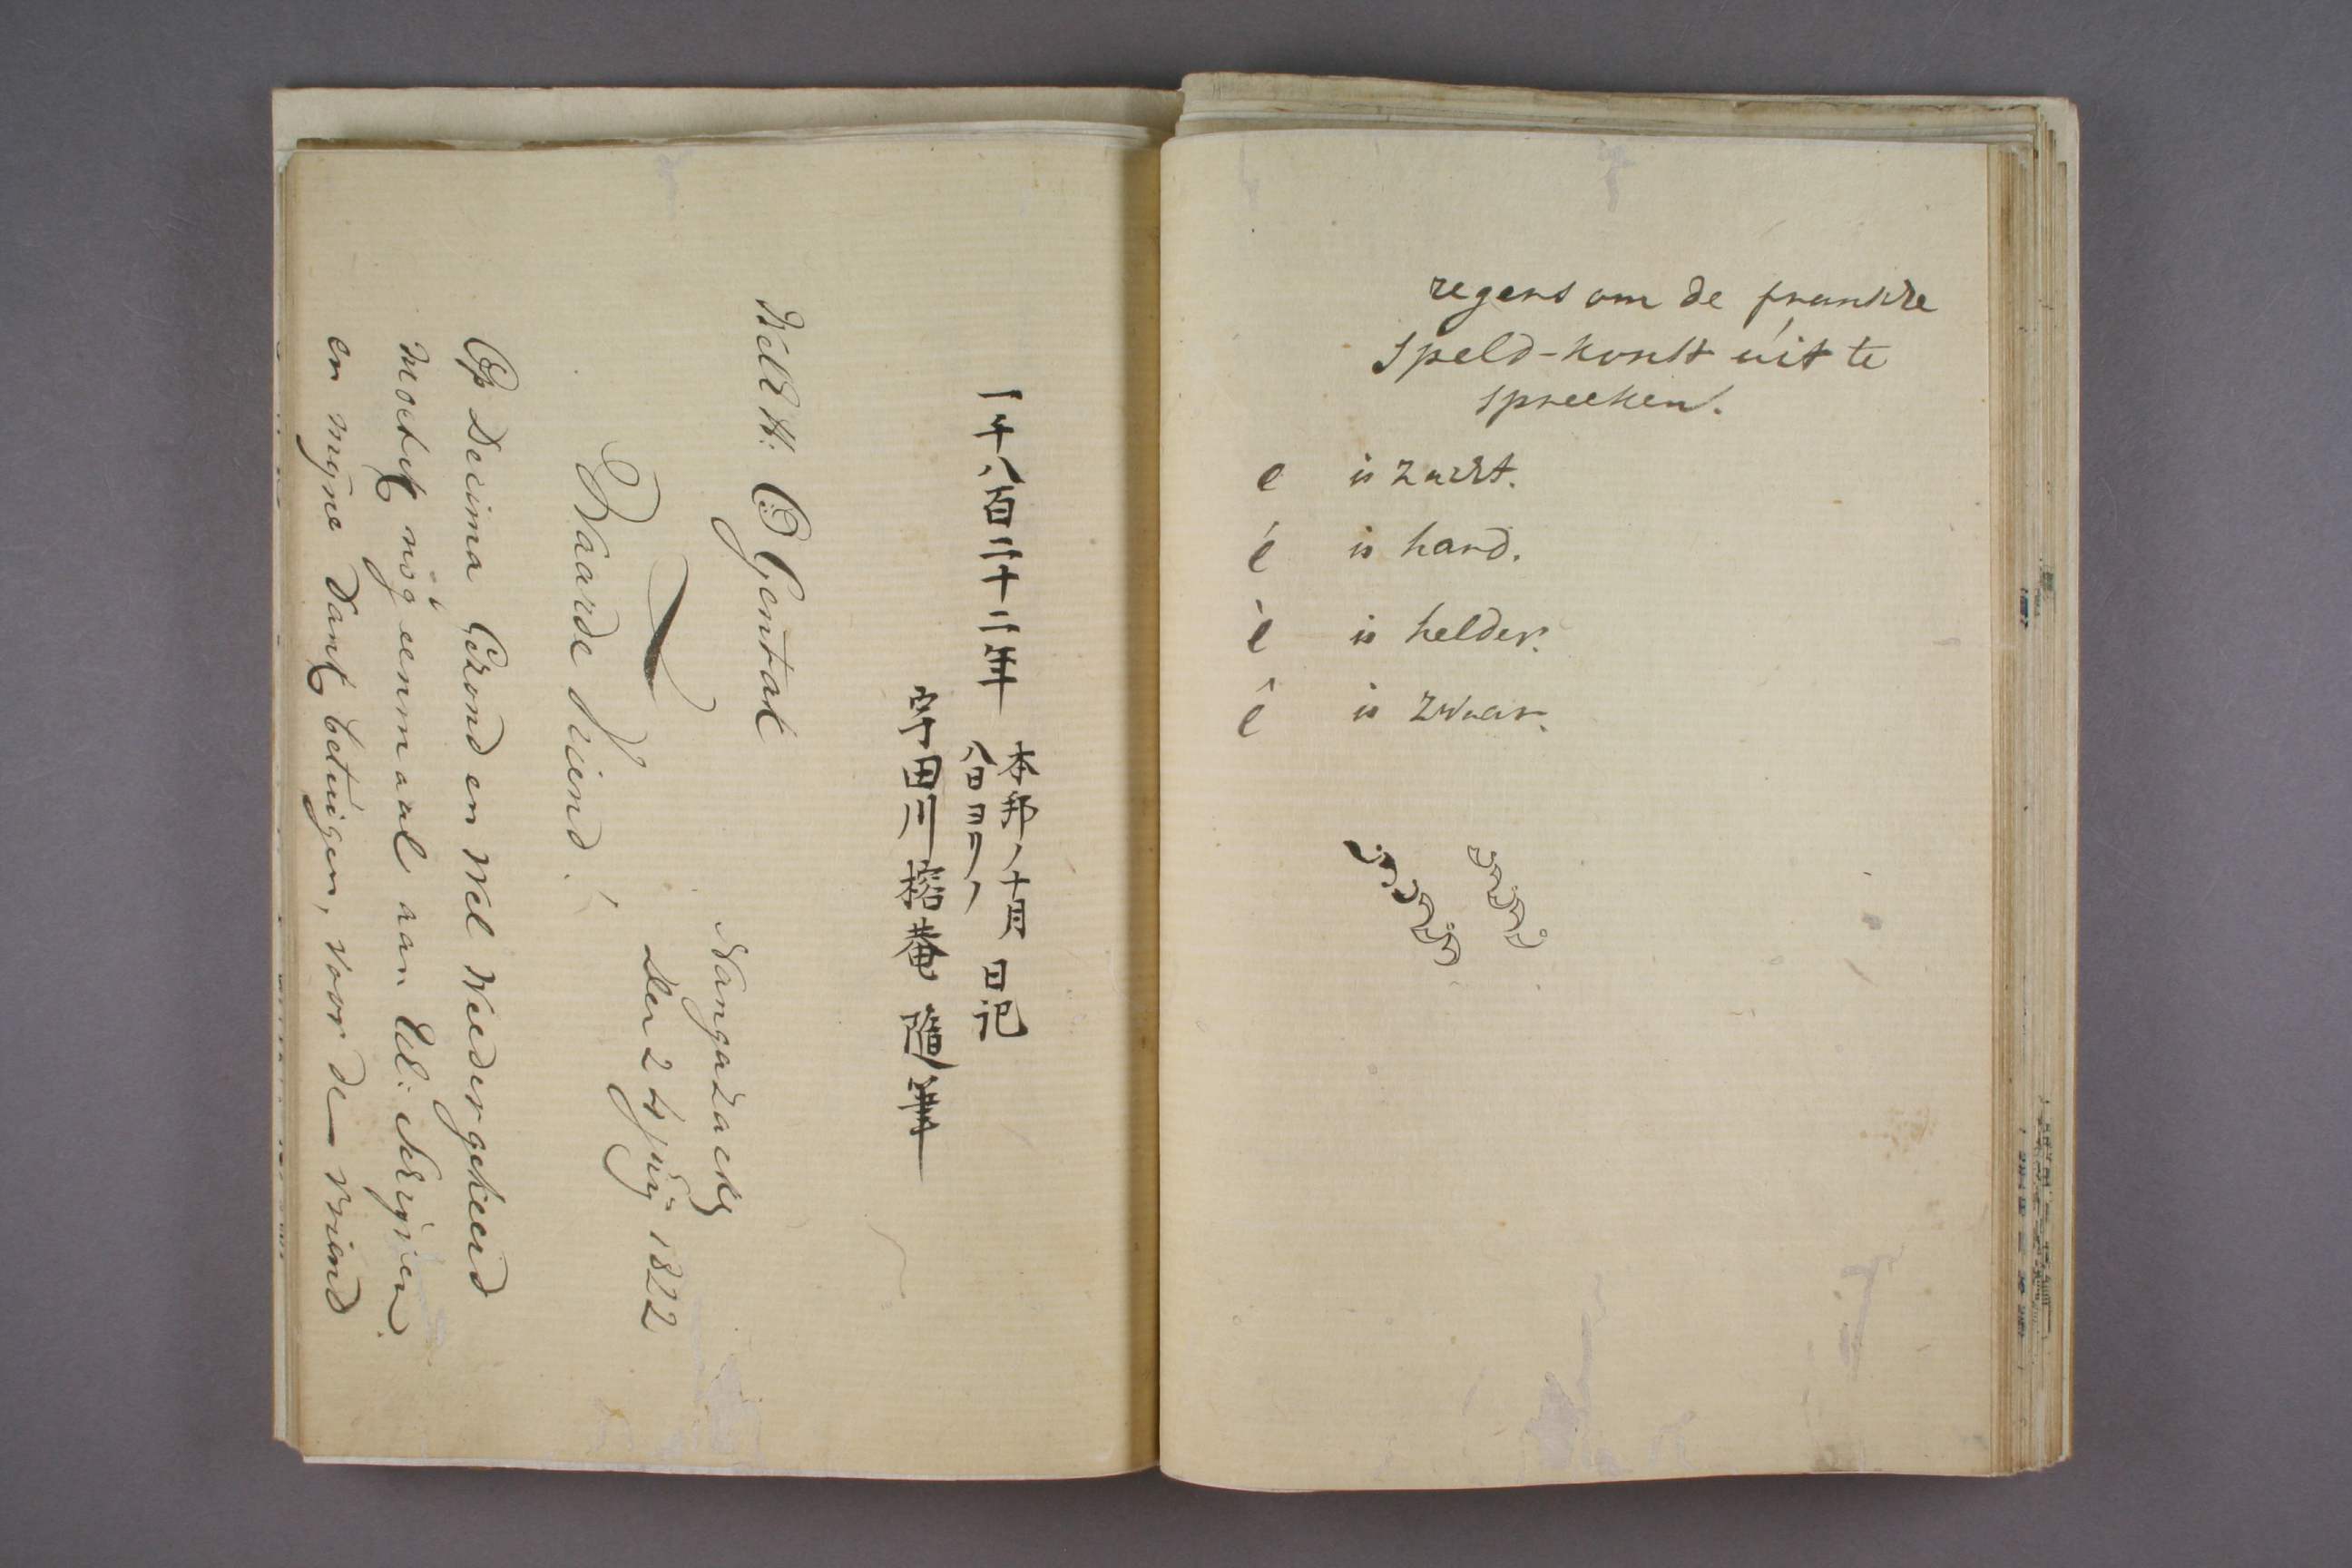 一千八百二十二年 本邦ノ十月
八日ヨリノ 日記
宇田川榕菴 隨筆
Gentak
Nangazacky
den 24 Junij 1822
Waarde Vriend!
Op Decima Grond en Wel Weedergekeerd
moet ik nog eenmaal aan UE: schrijven.
en mijne Dank betuigen, voor de vriend
regens om de fransche
speld-konst uit te
spreeken.
e is zacht.
é is hard.
è is helder.
ê is zwaar.